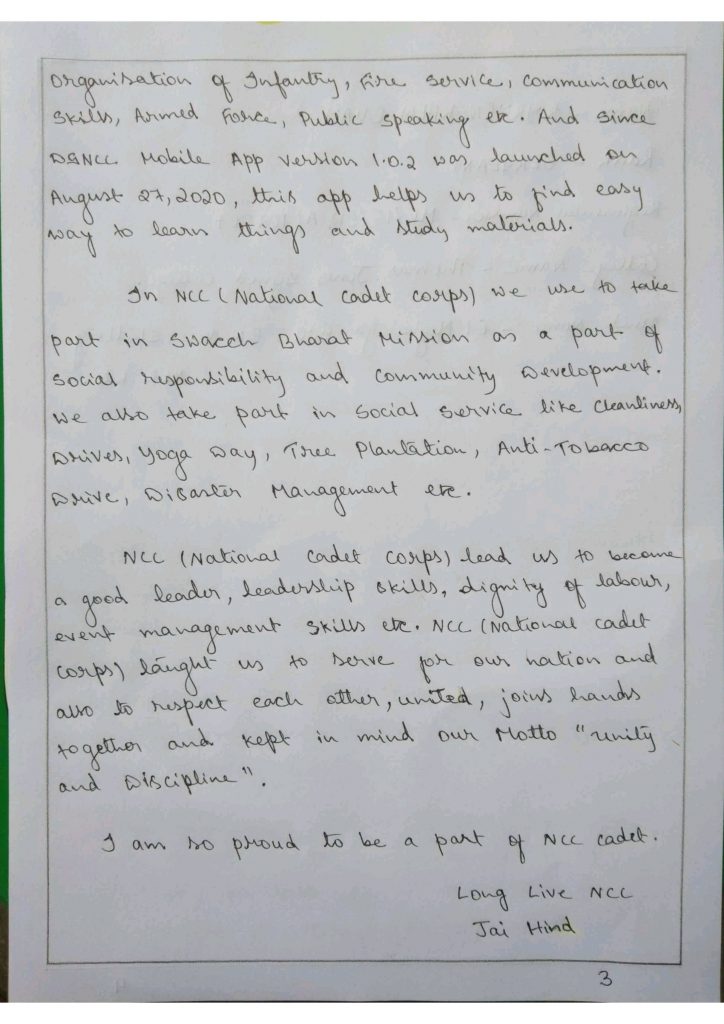 Organisation of Infantry, Fire Service, Communication
Skills, Armed Force, Public speaking etc. And Since
DGNCC Mobile App Version 1.0.2 was launched on
August 27, 2020, this app helps us to find easy
way to learn things and study materials.
In NCC (National Cadet Corps) we use to take
part in Swacch Bharat Mission as a part of
Social responsibility and Community Development.
We also take part in Social Service like Cleanliness,
Drives, Yoga Day, Tree Plantation, Anti-Tobacco
Drive, Disaster Management etc.
NCC (National Cadet Corps) lead us to become
a good leader, leadership skills, dignity of labour,
event management skills etc. NCC (National cadet
Corps) taught us to serve for our nation and
also to respect each other, united, joins hands
together and kept in mind our Motto "Unity
and Discipline".
I am so proud to be a part of NCC cadet.
Long Live NCC
Jai Hind
3